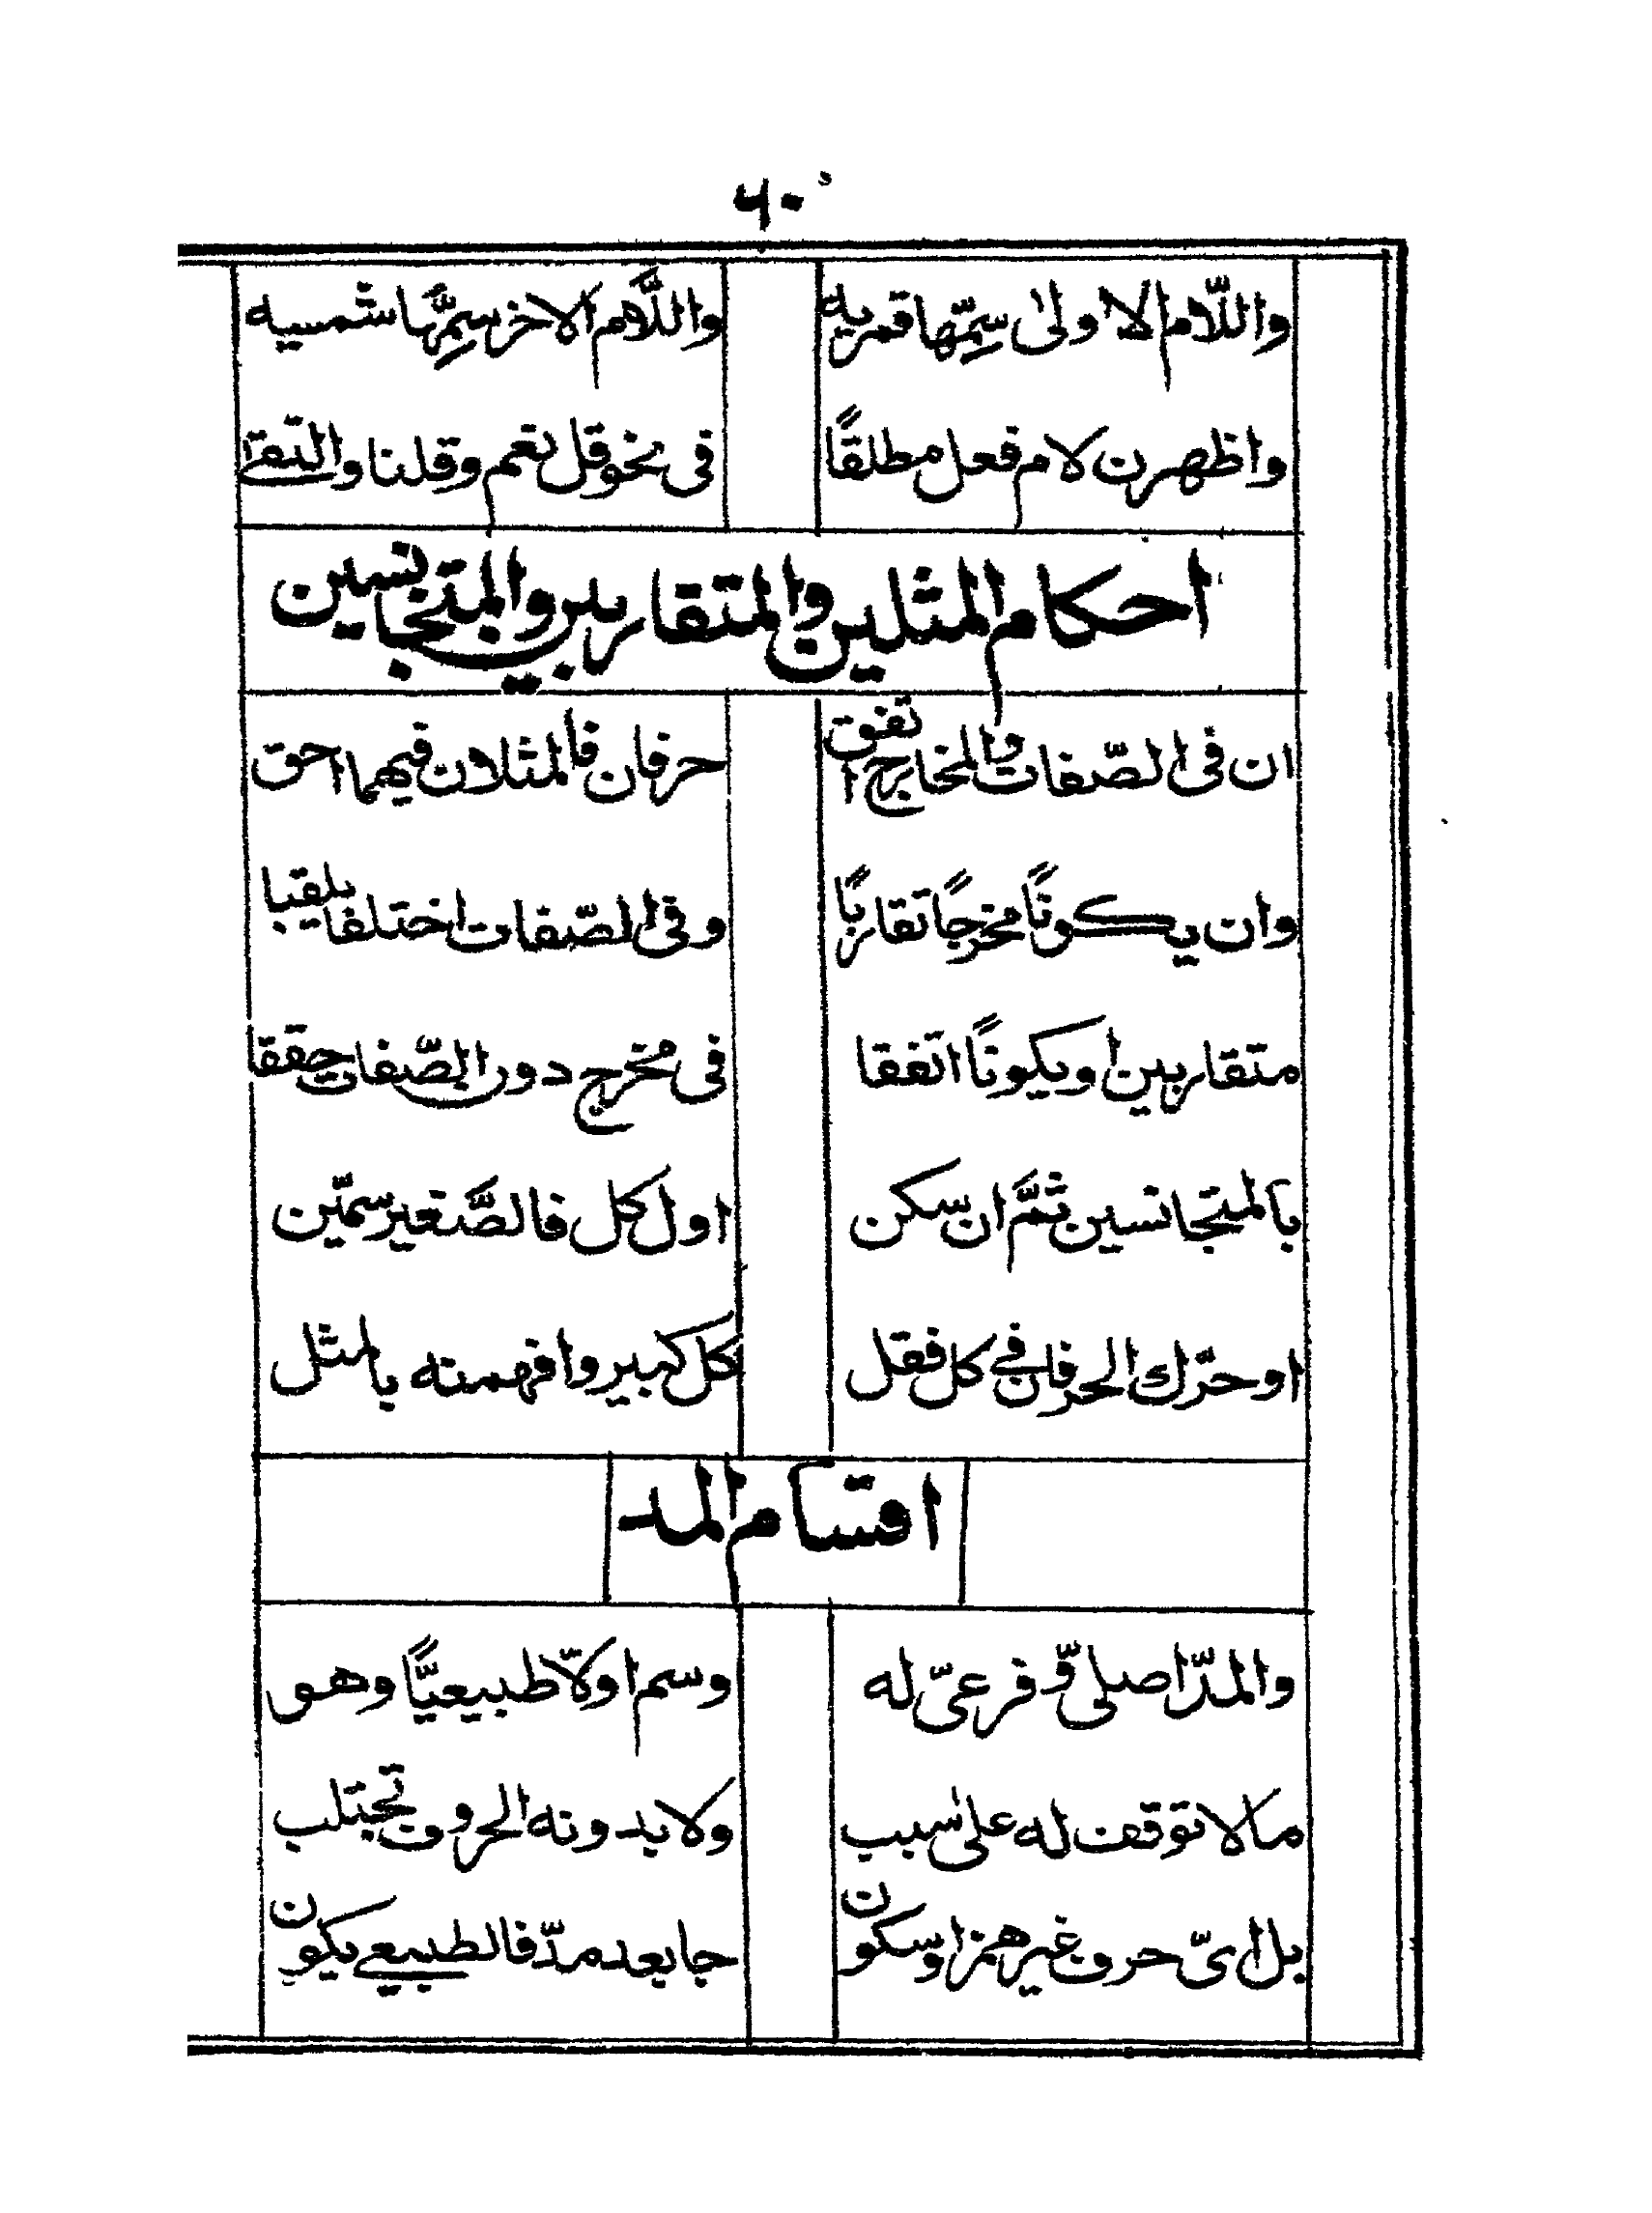 ٦٠
واللّام الاولىٰ سمِّها قمريه واللَّام الاخر سمِّها شمسيه
واظهرن لام فعل مطلقًا فى نحو قل نعم وقلنا والتقىٰ
احكام المثلين والمتقاربين والمتجانسين
ان فى الصّفات والمخارج اتفق حرفان فالمثلان فيهما احق
وان يكونًا مخرجًا تقاربًا وفى الصّفات اختلفا يلقبا
متقاربين او يكونًا اتفقا فى مخرج دون الصّفات حققا
بالمتجانسين ثمَّ ان سكن اول كل فالصَّغير سمّين
او حرّك الحرفان فے كل فقل كل كبير وافهمنه بالمثل
اقسام المد
والمدّ اصلى وّ فرعىّ له وسم اولاّ طبيعيًّا وهو
مالا توقف له علىٰ سبب ولا بدونه الحروف تجتلب
بل اىّ حرف غير همز او سكون جا بعد مدّ فالطبيعے يكون